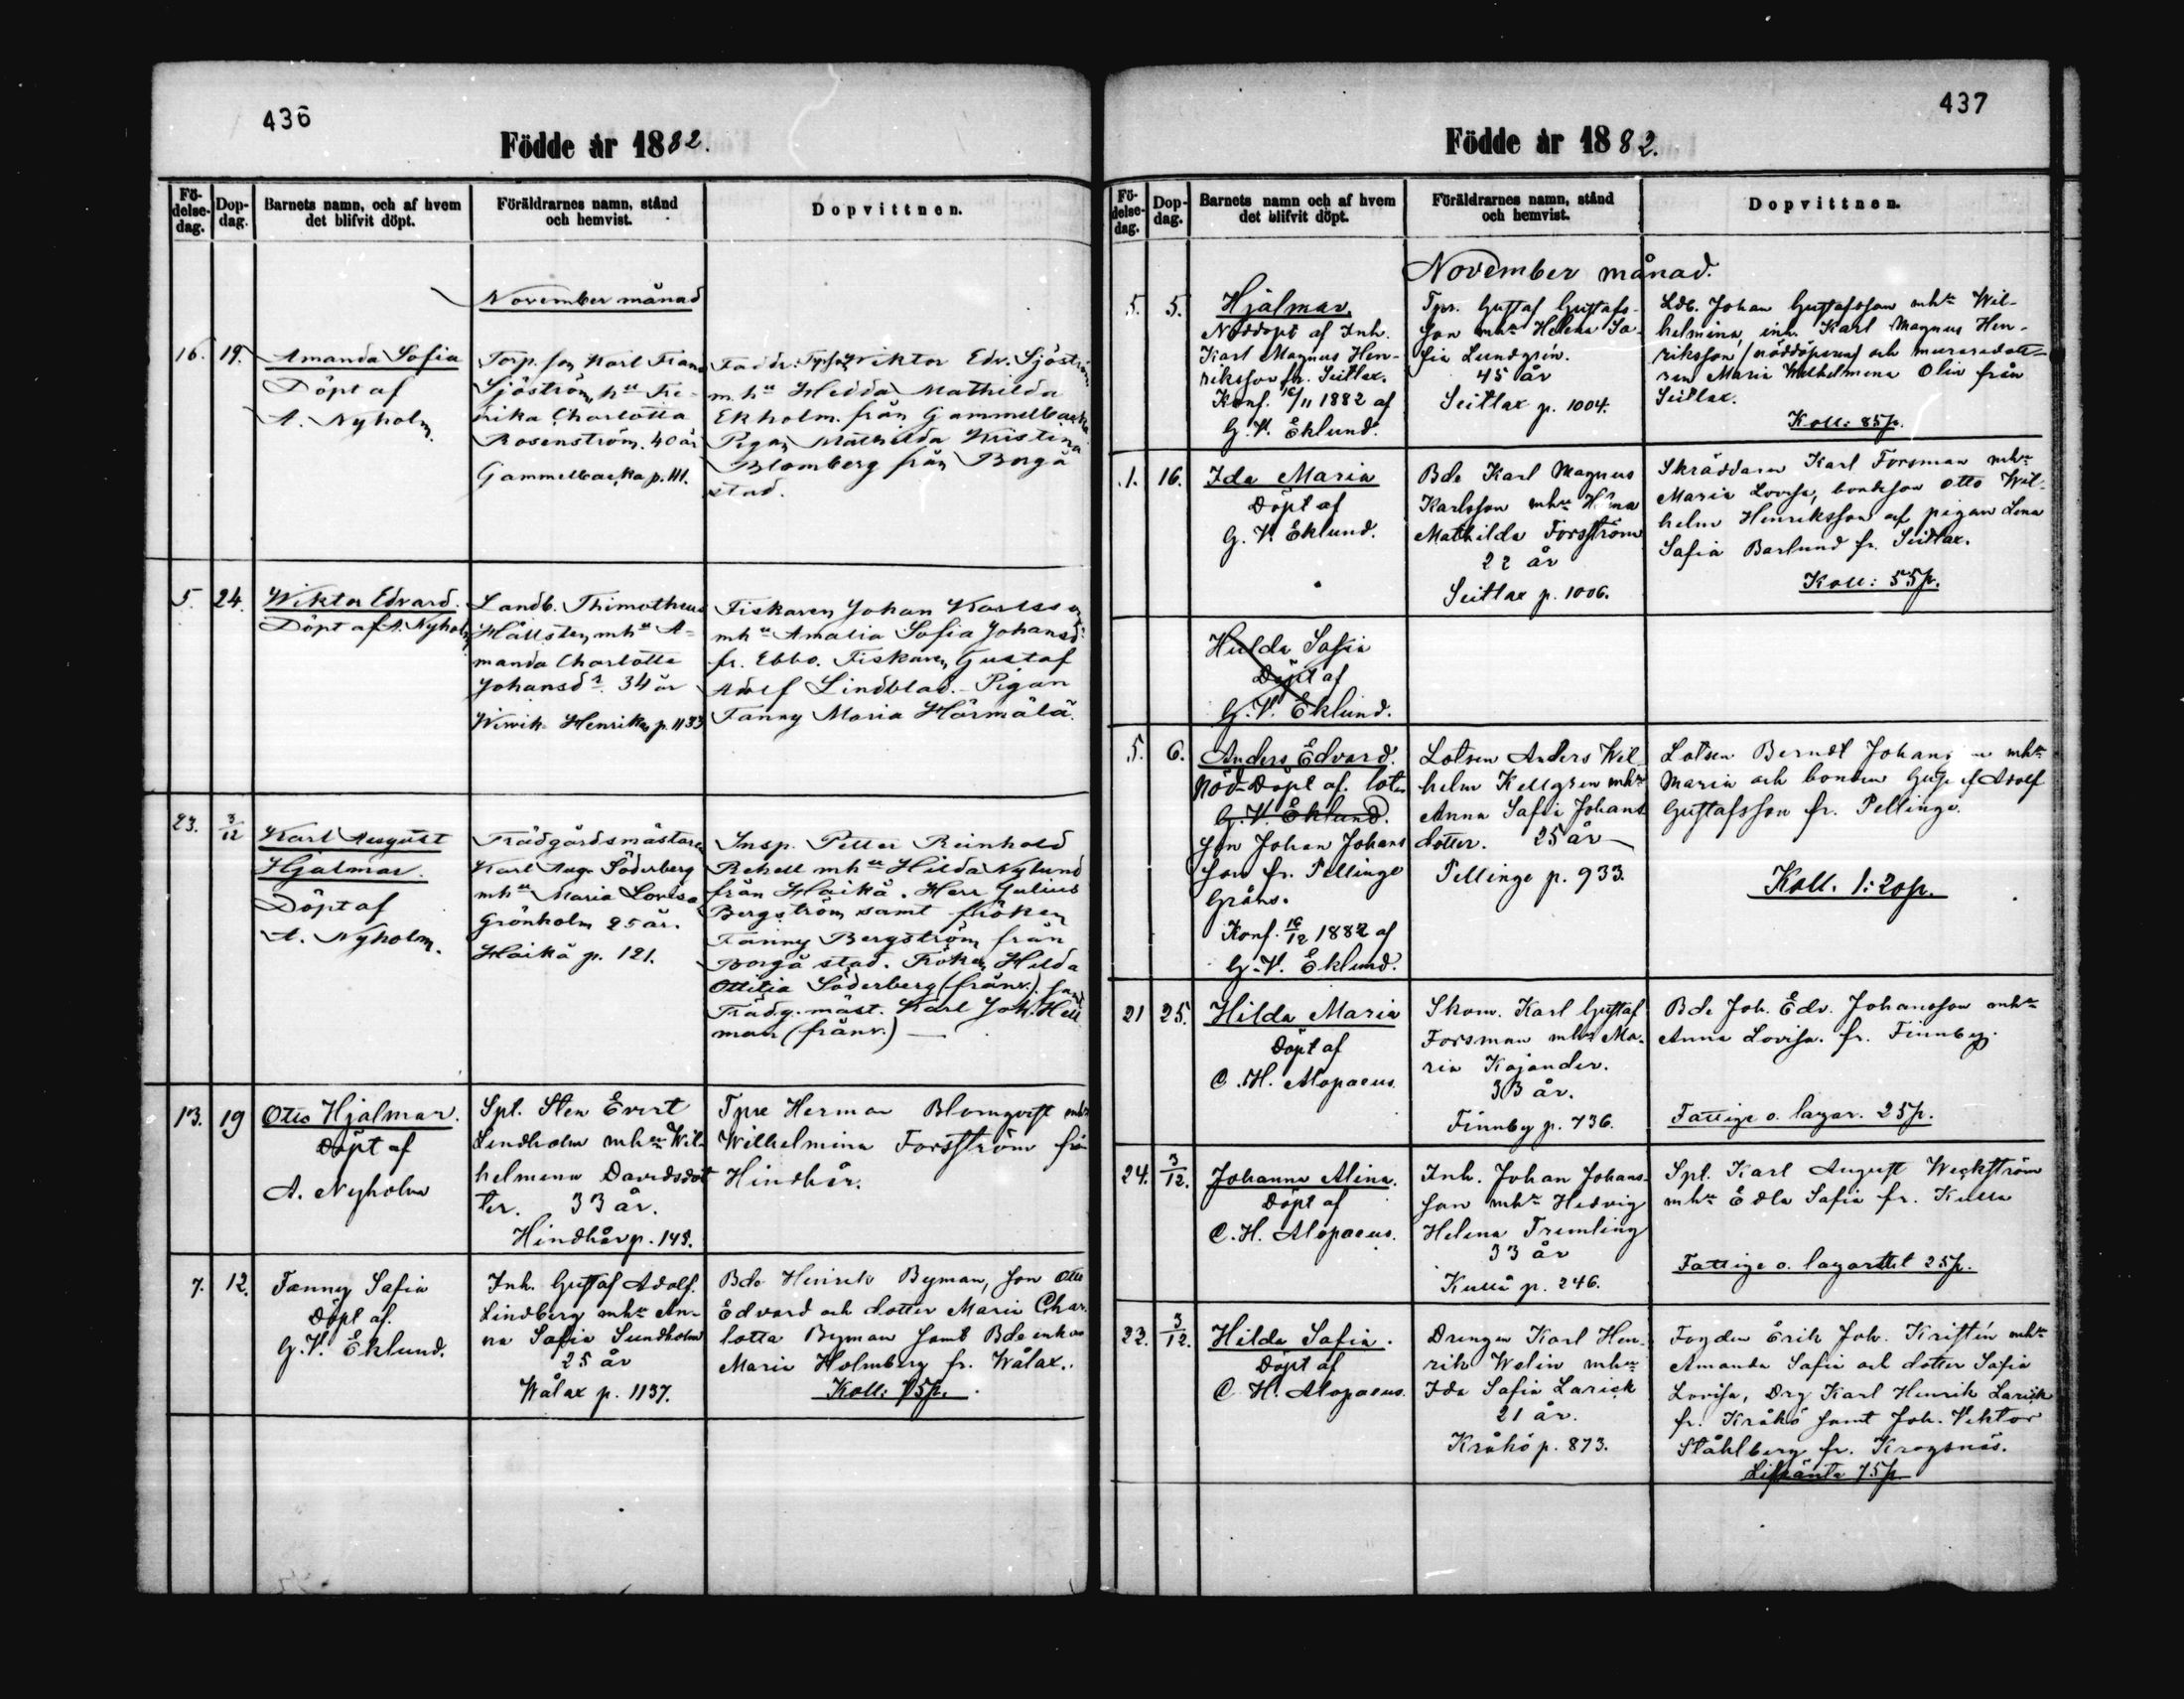 436
Födde år 1882.
Födelsedag.
Dopdag.
Barnets namn, och af hvem
det blifvit döpt.
Föräldrarnes namn, stånd
och hemvist.
Dopvittnen.
November månad
16. 19.
Amanda Sofia
Döpt af
A. Nyholm.
Torp. son Karl Frans
Sjöström, hu Fre-
rika Charlotta
Rosenström. 40 år
Gammelbacka p. 111.
Faddr: Viktor Edv. Sjöström
m. hu Hedda Mathilda
Ekholm. från Gammelbacka
Pigan Mathilda Kristina
Blomberg från Borgå
stad.
5. 24.
Wiktor Edvard.
Döpt af A. Nyholm
Landb. Thimotheus
Hällsten mhu A-
manda Charlotta
Johansdr. 34 år
Wirvik Henriks p. 1133
Fiskaren Johan Karlsson
mhu Amalia Sofia Johansd:
fr. Ebbo. Fiskaren Gustaf
Adolf Lindblad. - Pigan
Fanny Maria Härmälä.
23. 3/12
Karl August
Hjalmar.
Döpt af
A. Nyholm.
Trädgårdsmästaren
Karl Aug. Söderberg
mhu Maria Lovisa
Grönholm 25 år.
Haikå p. 121.
Insp. Petter Reinhold
Rehell mhu Hilda Nylund
från Haikå. Herr Julius
Bergström samt fröken
Fanny Bergström från
Borgå stad. Fröken Hilda
Ottilia Söderberg (frånv.) samt
Trädg. mäst. Karl Joh. Hell
man (frånv.) —
13. 19
Otto Hjalmar.
Döpt af
A. Nyholm
Spl. Sten Evert
Lindholm mhu Wil-
helmina Davidsdot
ter. 33 år.
Hindhår p. 148.
Tpre Herman Blomqvist mhu
Wilhelmina Forsström från
Hindhår.
7. 12.
Fanny Sofia
Döpt af.
G. V. Eklund.
Inh. Gustaf Adolf.
Lindberg mhu An-
na Sofia Sundholm
25 år
Wålax p. 1137.
Bde Henrik Byman, son Otto
Edvard och dotter Maria Char-
lotta Byman samt Bdeenkan
Maria Holmberg fr. Wålax.
Koll: 75p.
437
Födde år 1882.
Födelsedag.
Dopdag.
Barnets namn och af hvem
det blifvit döpt.
Föräldrarnes namn, stånd
och hemvist.
Dopvittnen.
November månad.
5. 5.
Hjalmar.
Nöddöpt af Inh.
Karl Magnus Hen-
riksson fr. Seitlax.
Konf. 16/11 1882 af
G. V. Eklund.
Tpr. Gustaf Gustafs-
son mhu Helena So-
fia Lundgrén.
45 år
Seitlax p. 1004.
Ldb. Johan Gustafsson mhu Wil-
helmina, inh. Karl Magnus Hen-
riksson (nöddöparen) och muraredott-
ren Maria Wilhelmina Olin från
Seitlax.
Koll: 85p.
1. 16.
Ida Maria
Döpt af
G. V. Eklund.
Bde Karl Magnus
Karlsson mhu
Mathilda Forsström
22 år
Seitlax p. 1006.
Skräddaren Karl Forsman mhu
Maria Lovisa, bondeson Otto Wil-
helm Henriksson och pigan Lena
Sofia Barlund fr. Seitlax.
Koll: 55p.
Hulda Sofia
Döpt af
G. V. Eklund.
5. 6.
Anders Edvard.
Nöd-Döpt af lots
G. V. Eklund.
son Johan Johans
son fr. Pellinge
Konf. 16/12 1882 af
G. V. Eklund.
Lotsen Anders Wil-
helm Kellgren mhu
Anna Sofia Johans
dotter. 25 år
Pellinge p. 933.
Lotsen Berndt Johan mhu
Maria och bonden Adolf
Gustafsson fr. Pellinge.
Koll. 1:20p.
21 25.
Hilda Maria
Döpt af
C. H. Alopaeus.
Skom. Karl Gustaf
Forsman mhu Ma-
ria Kajander.
33 år.
Finnby p. 736.
Bde Joh. Edv. Johansson mhu
Anna Lovisa. fr. Finnby.
Fattige o. lazar. 25p.
24. 3/12.
Johanna Alina.
Döpt af
C. H. Alopaeus.
Inh. Johan Johans-
son mhu Hedvig
Helena Tremling
33 år
Kullå p. 246.
Spl. Karl August Weckström
mhu Edla Sofia fr. Kullå
Fattige o. lazarettet 25p.
22. 3/12.
Hilda Sofia.
Döpt af
C. H. Alopaeus.
Drengen Karl Hen-
rik Welin mhu
Ida Sofia Larick
21 år.
Kråkö p. 873.
Fogden Erik Joh. Kristén mhu
Amanda Sofia och dotter Sofia
Lovisa, Drg Karl Henrik Larick
fr. Kråkö samt Joh. Viktor
Ståhlberg fr. Krogsnäs.
75p